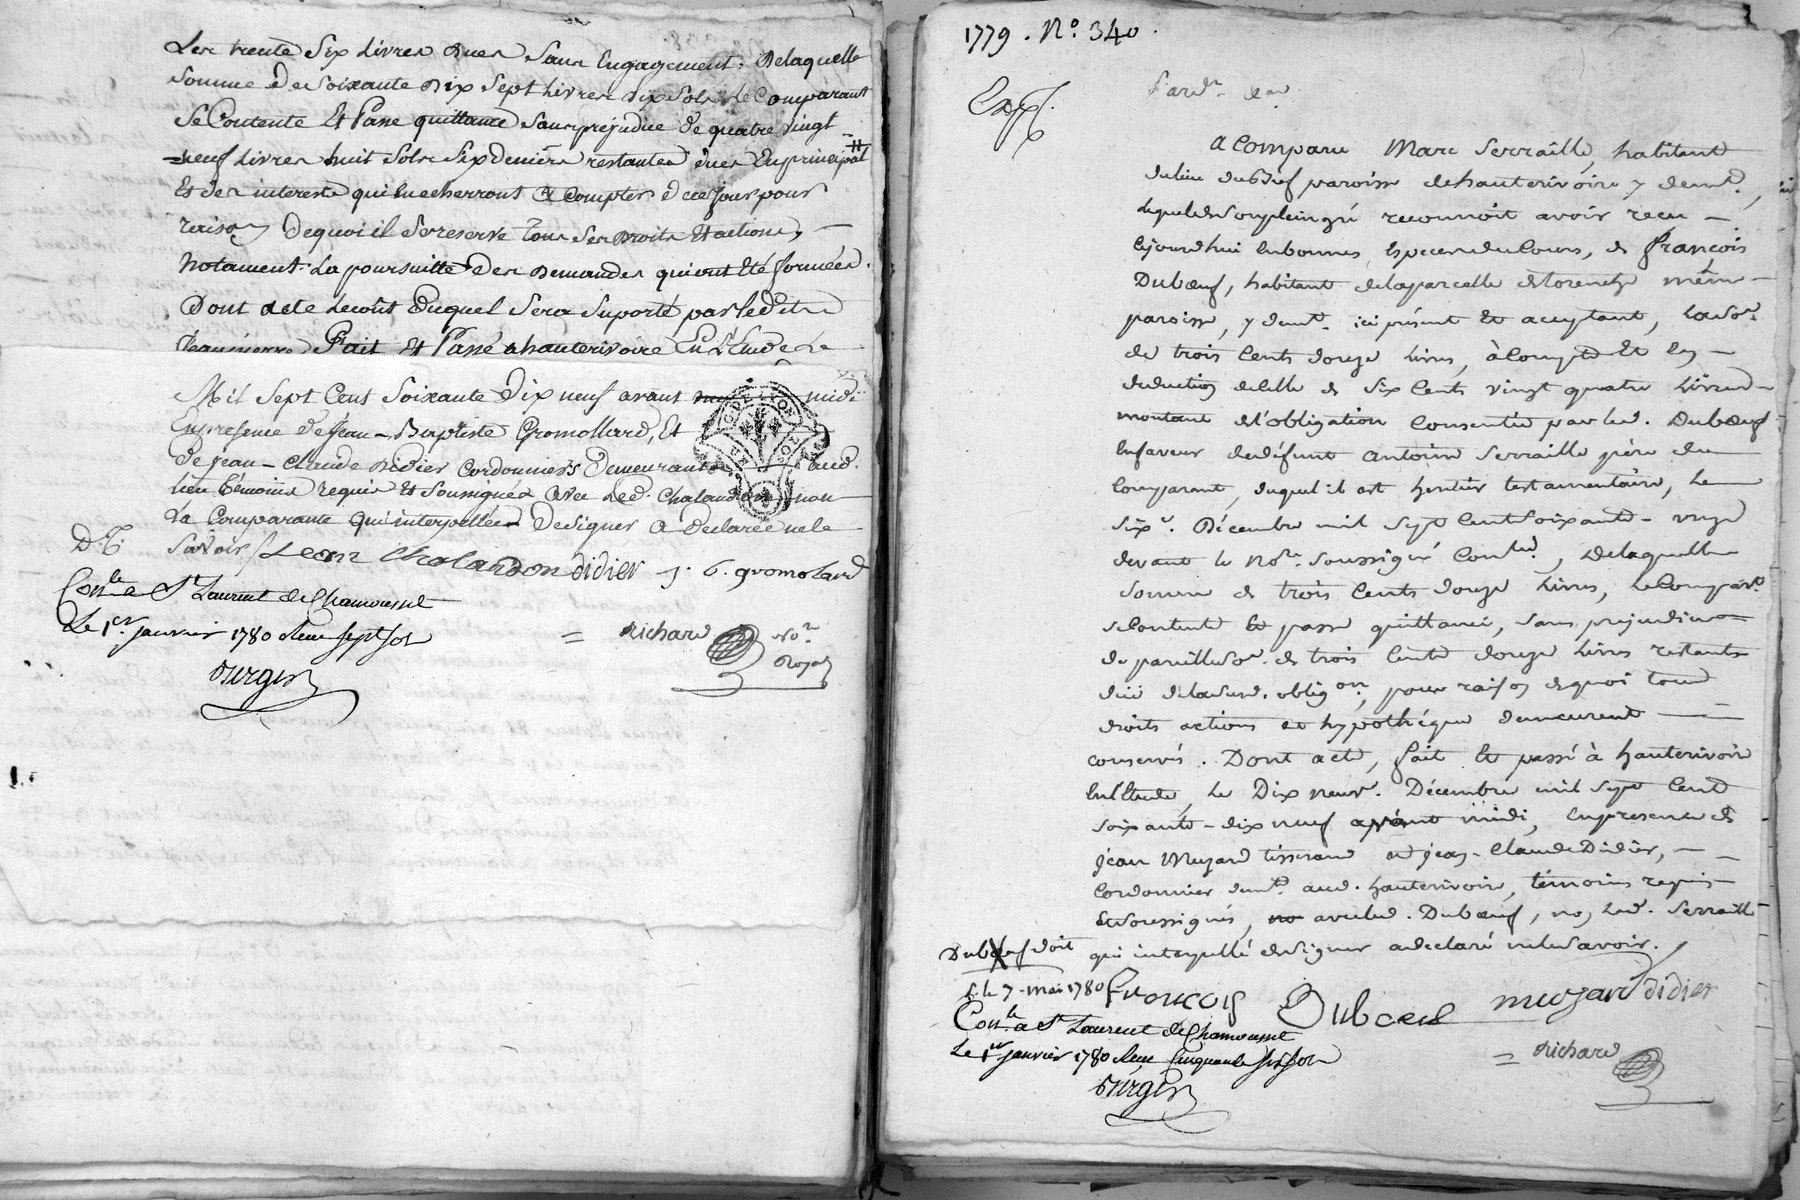 Les trente Six Livres dues Sans Engagement. Delaquelle
Somme de Soixante Dix Sept Livres dix Sols le Comparant
Se Contente Et Passe quittance Sans prejudice de quatre vingt
neuf Livres huit Sols Six deniers restantes dues En principal
Et des interests qui En echerront a Compter de ce jour pour
raison dequoi il Se reserve tous Ses Droits Et actions,
Notament La poursuitte des Demandes qui ont Eté formées.
Dont acte Le coût Duquel Sera Suporté par ledit
Jean pierre Fait Et Passé a hauterivoire En L'Etude Le
Mil Sept Cent Soixante Dix neuf avant midi
En presence de Jean-Baptiste Gromollard, Et
de jean-Claude Didier Cordonniers Demeurants aud.
lieu témoins requis Et Soussignés avec Led. Chalandon non
La Comparante qui interpellée De signer a Declaré ne le
D.t. Savoir / Jean Chalandon didier j. b. gromolard
Con.le a St Laurent de Chamousset
Le 1er janvier 1780 Reçu sept sols
= Richard No.re Royal
Durger
1779. N.o 340.
Exp.
Pard.t
a Comparu Marc Serraille, habitant
du lieu du Bief paroisse de hauterivoire y demt.,
lequel de Son plein gré reconnoît avoir reçu
cejourdhui En bonnes Especes du Cours, de françois
Duboeuf, habitant de la parcelle de Lorenche même
paroisse, y demt. ici présent Et acceptant, la So.e
de trois Cents douze Livres, à Compte Et En
deduction de Celle de Six Cents vingt quatre Livres
montant de l'obligation Consentie par led. Duboeuf
En faveur de défunt antoine Serraille père du
Comparant, duquel il est héritier testamentaire, le
Six.e Décembre mil Sept Cent Soixante-onze
devant le No.re Soussigné Con.lée, De laquelle
Somme de trois Cents douze Livres, le Compart.
se Contente Et passe quittance, sans prejudice
de pareille So.e de trois Cents douze Livres restante
due de la Susd. oblig.on, pour raison de quoi tous
droits actions et hypothéques demeurent
conservés. Dont acte, fait Et passé à hauterivoire
En l'Etude, Le Dix neuv.e Décembre mil Sept Cent
Soixante-dix neuf avant midi, En presence de
Jean Muzard tisserand et jean-Claude Didier,
Cordonnier demts. aud. hauterivoire, témoins requis
Et Soussignés, avec led. Duboeuf, non Led. Serraille
Duboeuf doit qui interpellé de Signer a declaré ne le Savoir.
p. le 7 mai 1780 francois Duboeuf muzard didier
Con.le a St Laurent de Chamousset
Le 1er janvier 1780 Reçu Cinquante six sols
= Richard
Durger